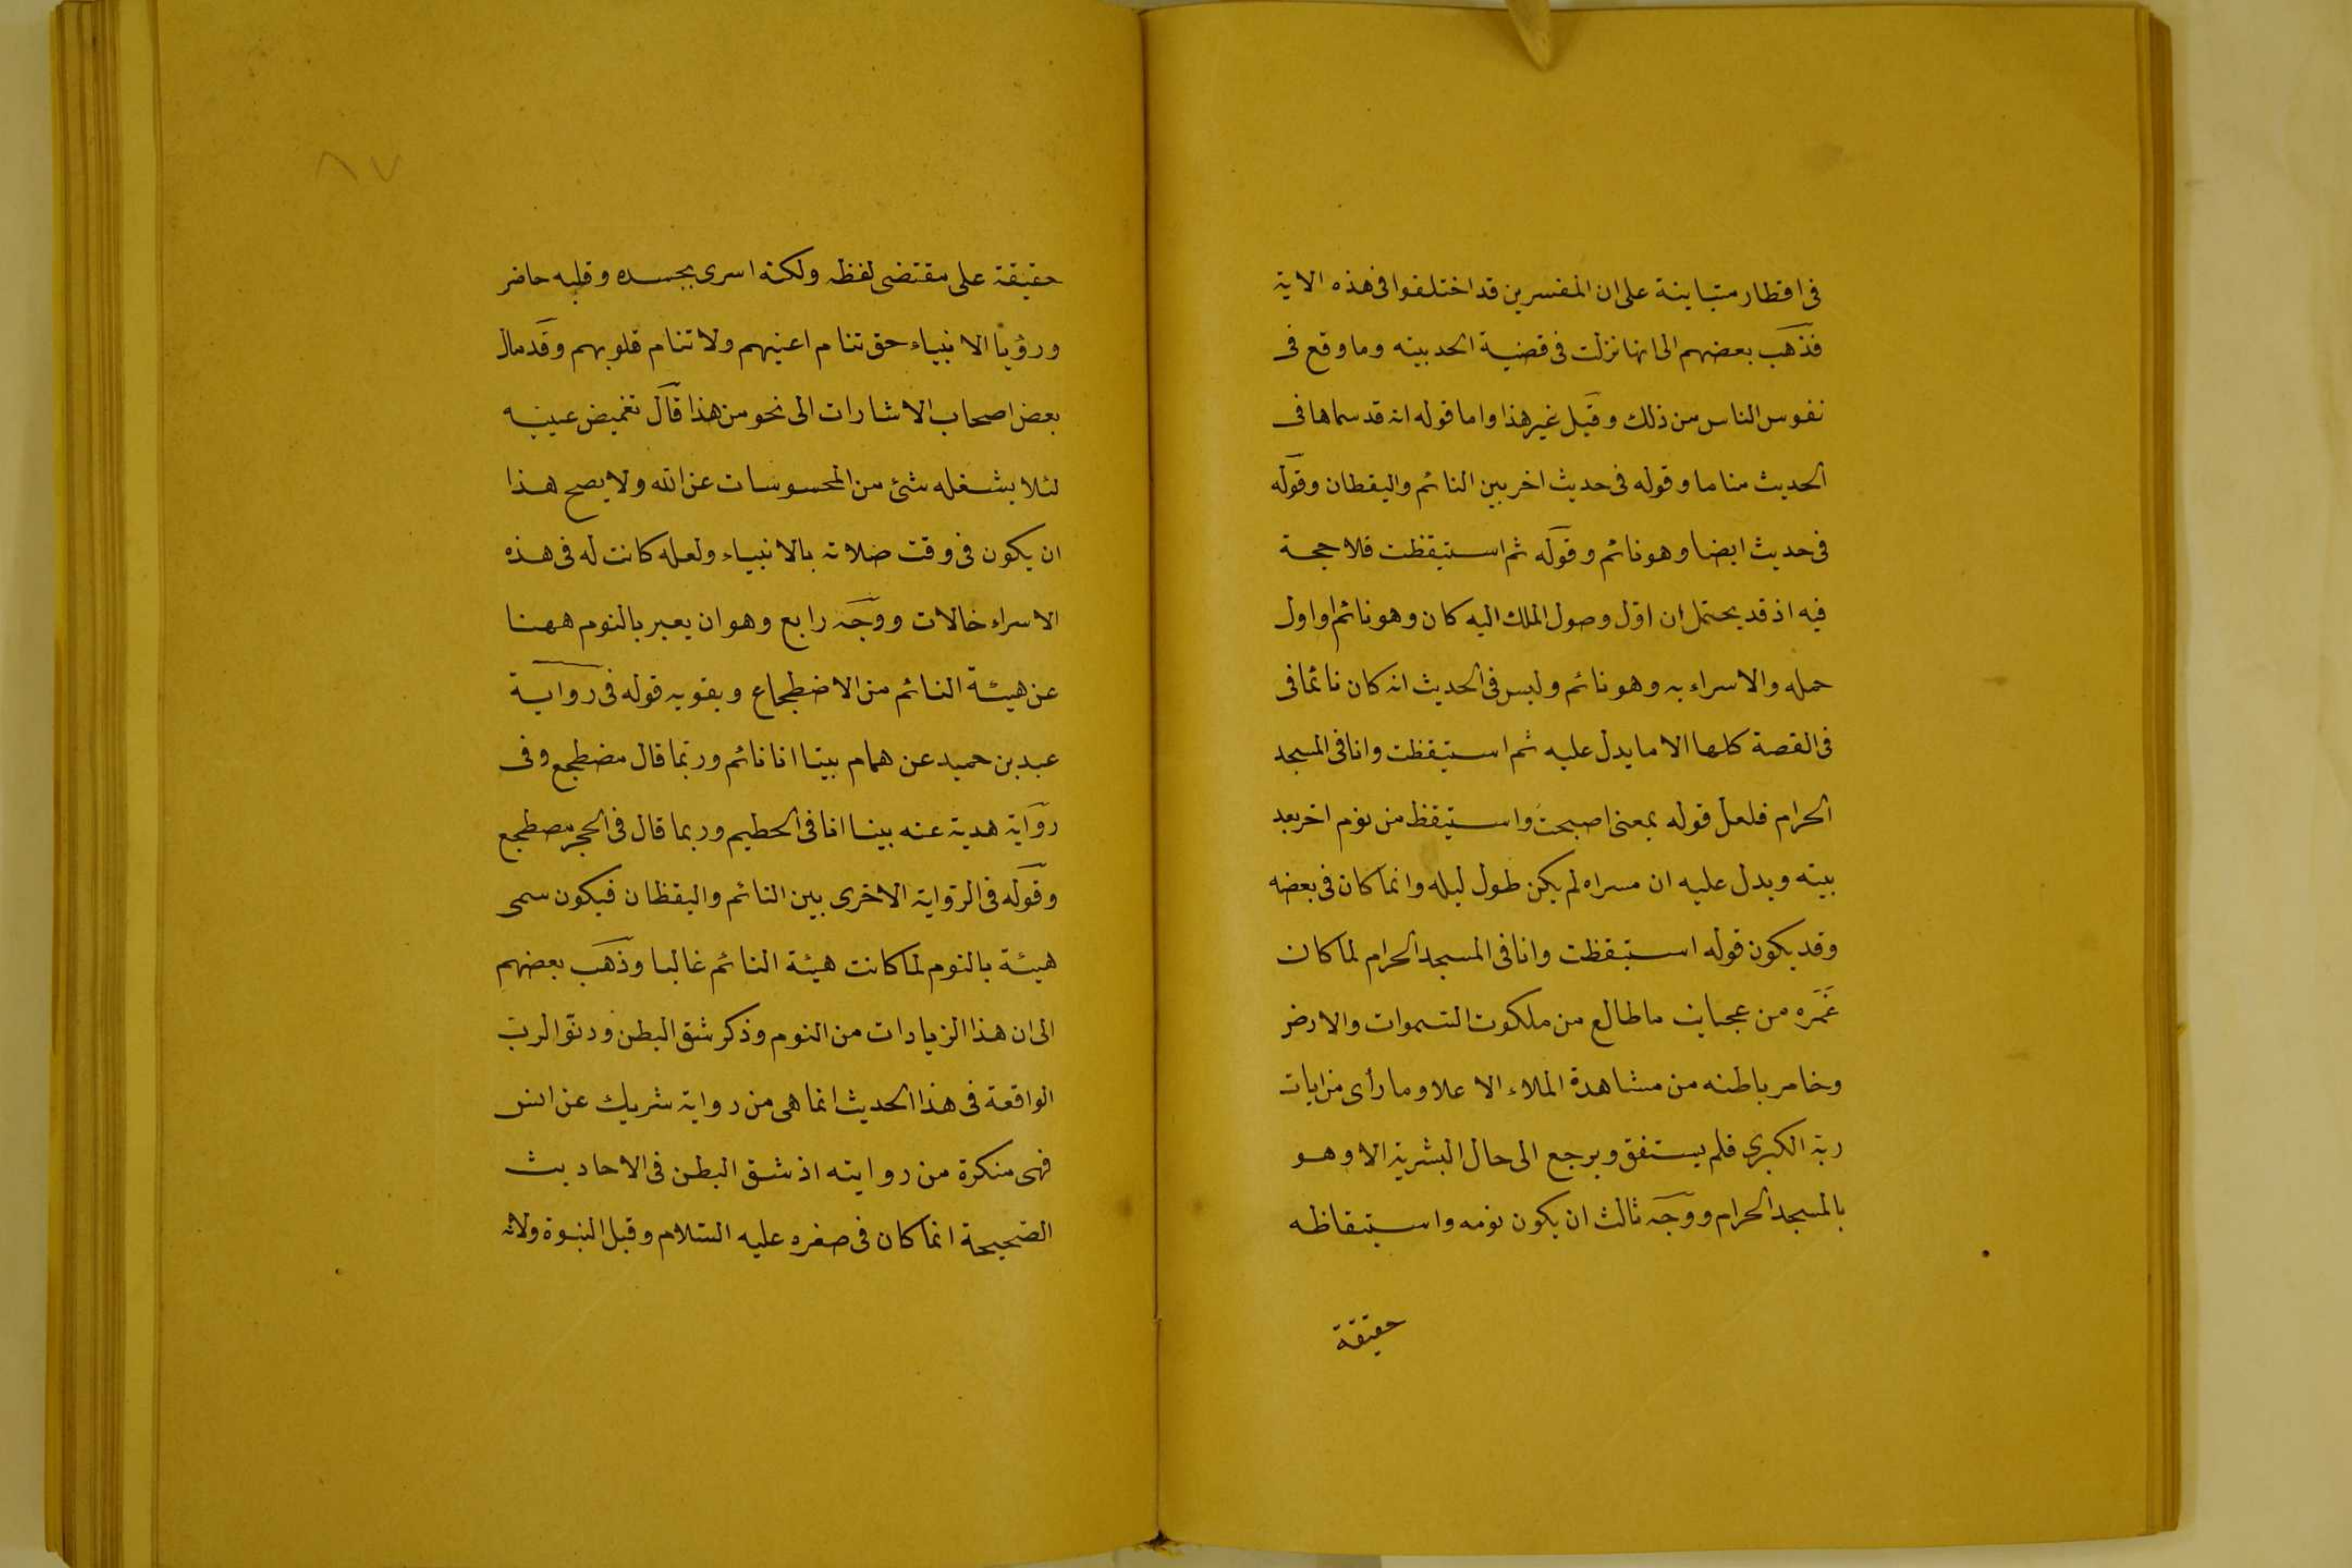 فى اقطار متباينة على ان المفسرين قد اختلفوا فى هذه الاية
فذهب بعضهم الى انها نزلت فى قضية الحديبيه وما وقع فى
نفوس الناس من ذلك وقيل غير هذا واما قوله انه قد سماها فى
الحديث مناما وقوله فى حديث اخر بين النائم واليقظان وقوله
فى حديث ايضا وهو نائم وقوله ثم استيقظت فلا حجة
فيه اذ قد يحتمل ان اوّل وصول الملك اليه كان وهو نائم او اول
حمله والاسراء به وهو نائم وليس فى الحديث انه كان نائما فى
فى القصة كلها الا ما يدل عليه ثم استيقظت وانا فى المسجد
الحرام فلعل قوله بمعنى اصبحت واستيقظ من نوم اخر بعد
بيته ويدل عليه ان مسراه لم يكن طول ليله وانما كان فى بعضه
وقد يكون قوله استيقظت وانا فى المسجد الحرام لما كان
غمره من عجايب ما طالع من ملكوت السموات والارض
وخامر باطنه من مشاهدة الملاء الاعلا وما رأى من ايات
ربه الكبرى فلم يستفق ويرجع الى حال البشرية الا وهو
بالمسجد الحرام ووجه ثالث ان يكون نومه واستيقاظه
حقيقة
حقيقة على مقتضى لفظه ولكنه اسرى بجسده وقلبه حاضر
ورؤيا الانبياء حق تنام اعينهم ولا تنام قلوبهم وقد مال
بعض اصحاب الاشارات الى نحو من هذا قال تغميض عينيه
لئلا يشغله شئ من المحسوسات عن الله ولا يصح هذا
ان يكون فى وقت صلاته بالانبياء ولعله كانت له فى هذه
الاسراء حالات ووجه رابع وهو ان يعبر بالنوم ههنا
عن هيئة النائم من الاضطجاع ويقويه قوله فى رواية
عبد بن حميد عن همام بينا انا نائم وربّما قال مضطجع وفى
رواية هدبة عنه بينا انا فى الحطيم وربما قال فى الحجر مضطجع
وقوله فى الرّواية الاخرى بين النائم واليقظان فيكون سمى
هيئة بالنوم لما كانت هيئة النائم غالبا وذهب بعضهم
الى ان هذا الزيادات من النوم وذكر شق البطن ودنوّ الربّ
الواقعة فى هذا الحديث انما هى من رواية شريك عن انس
فهى منكرة من روايته اذ شق البطن فى الاحاديث
الصّحيحة انما كان فى صغره عليه السّلام وقبل النبوة ولانه
٨٧